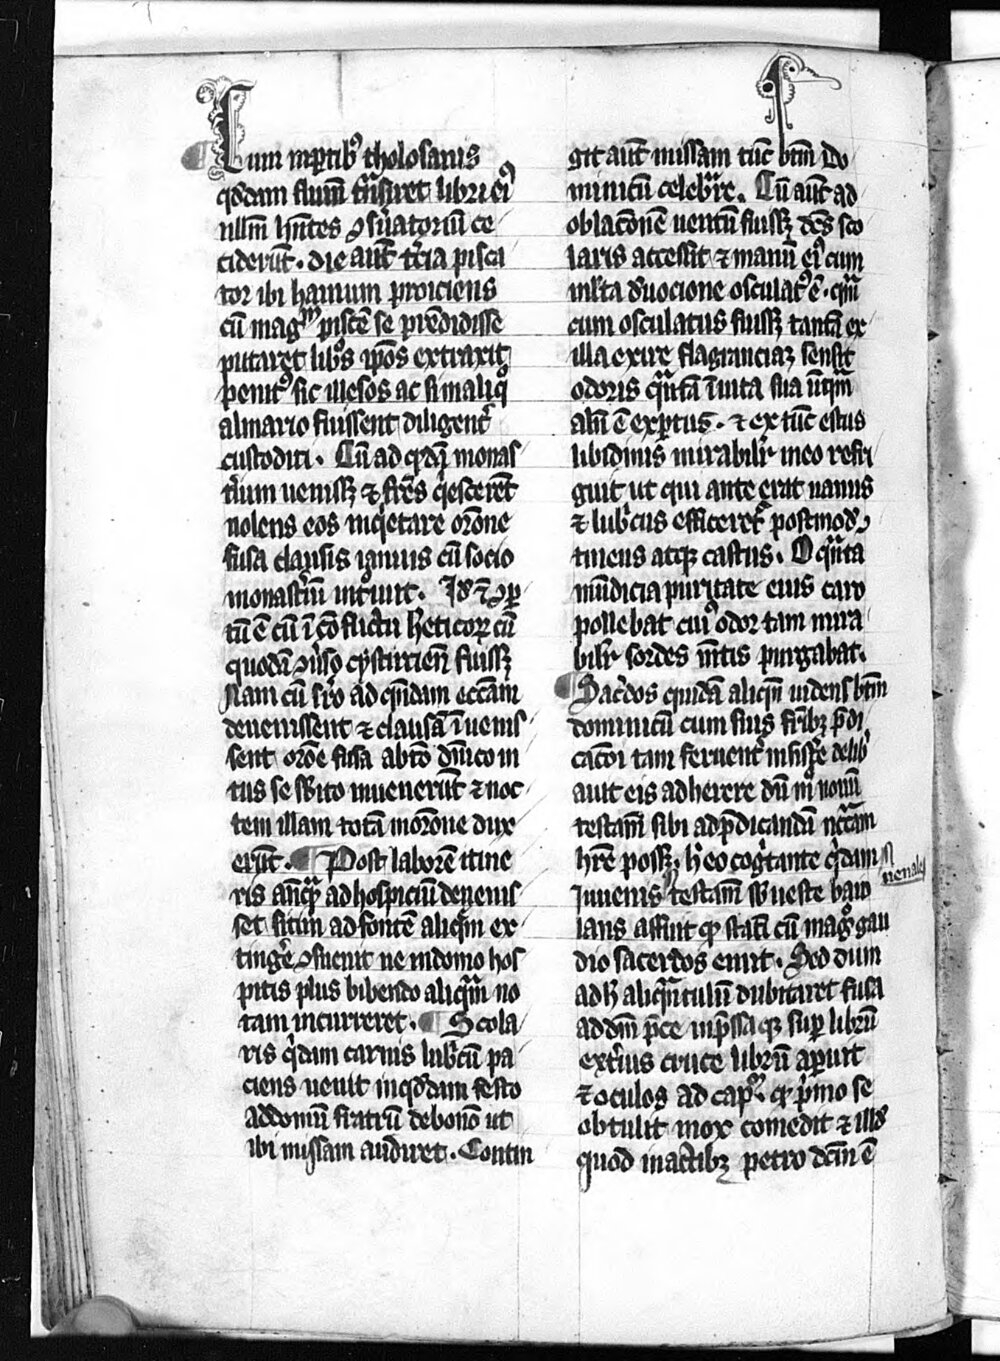 Cum in ꝑtibꝰ tholosanis
q̄dam flum̄ trāsiret libri eiꝰ
nllm̄ hn̄tes ↄsuatoriū ce
ciderūt. die aut̄ tcia pisca
tor ibi hamum proiciens
cū magnū piscē se prēdidisse
putaret libͦs ip̄os extraxit
penitꝰ sic illesos ac si in aliqͦ
almario fuissent diligent̄
custoditi. Cū ad qͦddā monas
tiū uenissꝫ ⁊ frēs q̇escerēt
nolens eos inq̇etare orōne
fusa clausis ianuis cū socio
monastiū int̄uit. Id ⁊ ↄꝑ
tū ē cū ī ↄflictu hetico⁊ cū
quodā ↄuso cystirciēn fuissꝫ
Nam cū sero ad qn̄dam eccām
deuenissent ⁊ clausā īuenis
sent orōe fusa abtō dn̄ico in
tus se subito inuenerūt ⁊ noc
tem illam totā in orōne dux
erūt. Post laborē itine
ris anq̄ꝫ ad hospiciū deuenis
set sitim ad fontē aliqm̄ ex
tinge ↄsueuit ne in domo hos
pitis plus bibendo aliqm̄ no
tam incurreret. Scola
ris qͥdam carnis lubcū pa
ciens ueuit in qͦdam festo
ad domū fratrū de bonō ut
ibi missam audiret. Contin
git aut̄ missam tūc btm̄ do
minicū celebre. Cū aut̄ ad
oblacōnē uentū fuissꝫ dcs̄ sco
laris accessit ⁊ manū eiꝰ cum
mlta deuocione osculatꝰ ē. qm̄
cum osculatus fuissꝫ tantā ex
illa exire flagranciaꝫ sensit
odoris qntā ī uita sua nūq̄m
an̄ ē exptus. ⁊ ex tūc estus
libidinis mirabilr in eo refri
guit ut qui ante erat uanus
⁊ lubcus efficeret postmod ↄ
tinens atqꝫ castus. O qnta
mūdicia puritate eius caro
pollebat cuiꝰ odor tam mira
bilr sordes mn̄tis purgabat.
Sacdos quidā aliqn̄ uidens btm̄
dominicū cum suis frībꝫ p̄di
cacōi tam feruent insiste delib
auit eis adherere dū m nouū
testam̄ sibi ad p̄dicandū ncc̄am
hre possꝫ. h eo cogitante qͥdam
iuuenis testam̄ sub ueste baiu uenale
lans affuit qͦ statī cū magͦ gau
dio sacerdos emit. Sed dum
ad h aliqn̄tulū dubitaret fusa
ad dm̄ p̄ce inp̄ssa qꝫ sup librū
extius cruce librū aperuit
⁊ oculos ad cap. qͦ pmo se
obtulit mox comedit ⁊ illd
quod in actibꝫ petro dcm̄ ē